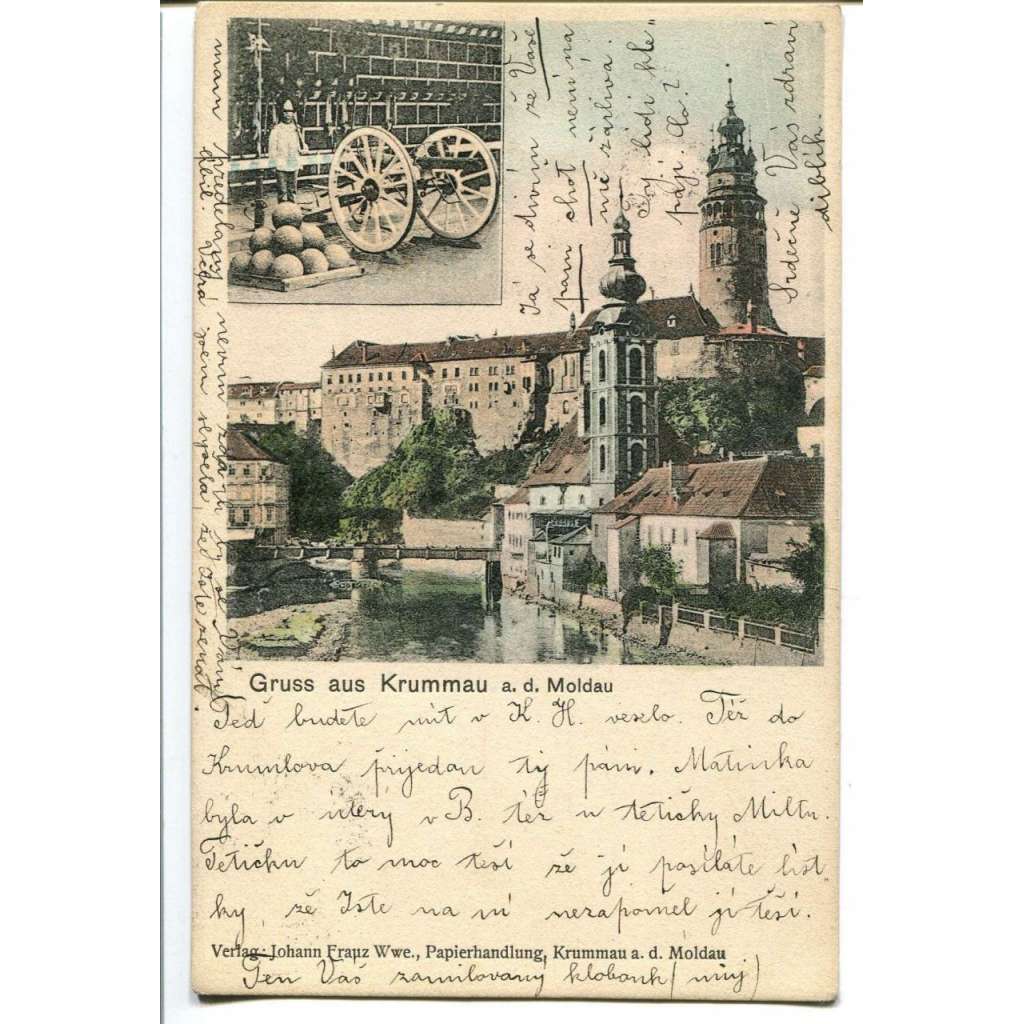 Gruss aus Krummau a. d. Moldau
Teď budete mít v K. H. veselo. Též do
Krumlova přijedou tý páni. Matinka
byla v úterý v B. též u tetičky Miltn.
Tetičku to moc těší že jí posíláte líst
ky, že Jste na ní nezapomel jí těší.
Verlag: Johann Franz Wwe., Papierhandlung, Krummau a. d. Moldau
Ten Váš zamilovaný klobouk (můj)
Já se divím že Vaše
paní chot není na
mě žárlivá.
lidi kle
pají. Co?
Srdečně Vás zdraví
diblík.
nevím zda-li by se Vám
líbil. Včera jsem slyšela že Jste ženat.